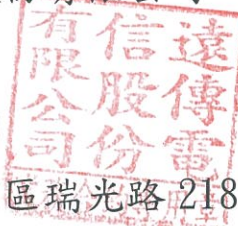 遠傳電
信股份
有限公司
區瑞光路 218